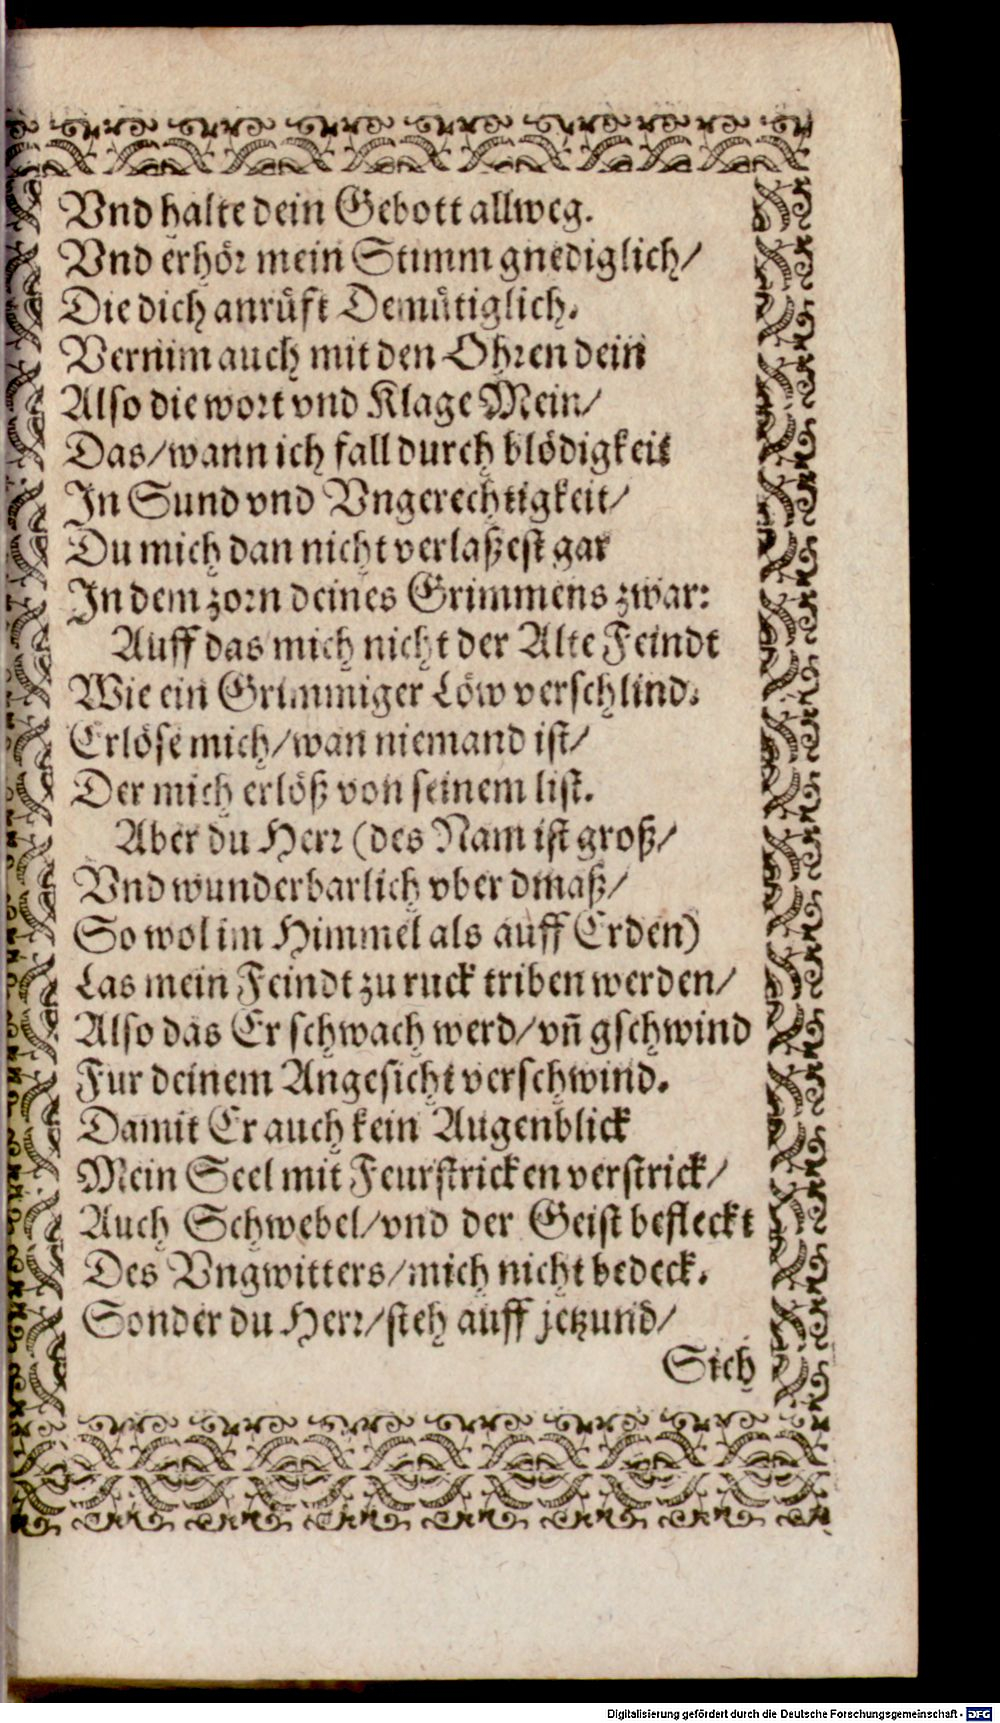 Vnd halte dein Gebott allweg.
Vnd erhör mein Stimm gnediglich/
Die dich anrüft Demütiglich.
Vernim auch mit den Ohren dein
Also die wort vnd Klage Mein/
Das/wann ich fall durch blödigkeit
In Sund vnd Vngerechtigkeit/
Du mich dan nicht verlaßest gar
In dem zorn deines Grimmens zwar:
Auff das mich nicht der Alte Feindt
Wie ein Grimmiger Löw verschlind.
Erlöse mich/wan niemand ist/
Der mich erlöß von seinem list.
Aber du Herr (des Nam ist groß/
Vnd wunderbarlich vber dmaß/
So wol im Himmel als auff Erden)
Las mein Feindt zu ruck triben werden/
Also das Er schwach werd/vñ gschwind
Fur deinem Angesicht verschwind.
Damit Er auch kein Augenblick
Mein Seel mit Feurstricken verstrick/
Auch Schwebel/vnd der Geist befleckt
Des Vngwitters/mich nicht bedeck.
Sonder du Herr/steh auff jetzund/
Sieh
Digitalisierung gefördert durch die Deutsche Forschungsgemeinschaft - DFG